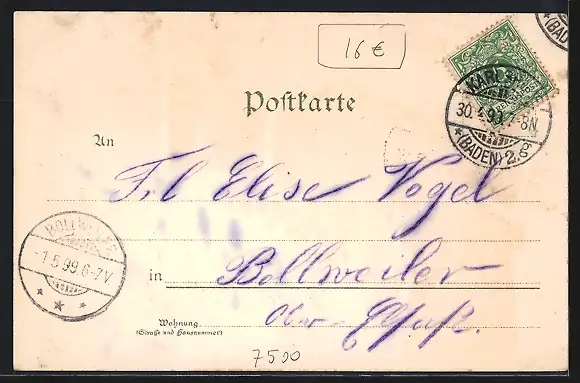 16 €
Postkarte
KARLS
30.4.99. 7-8N.
*(BADEN) 2.
(BAD
An
Frl Elise Vogel
BOLLWEILER
1.5.99. 6-7V
in Bollweiler
Ober-Elsaß.
Wohnung
(Straße und Hausnummer)
7500